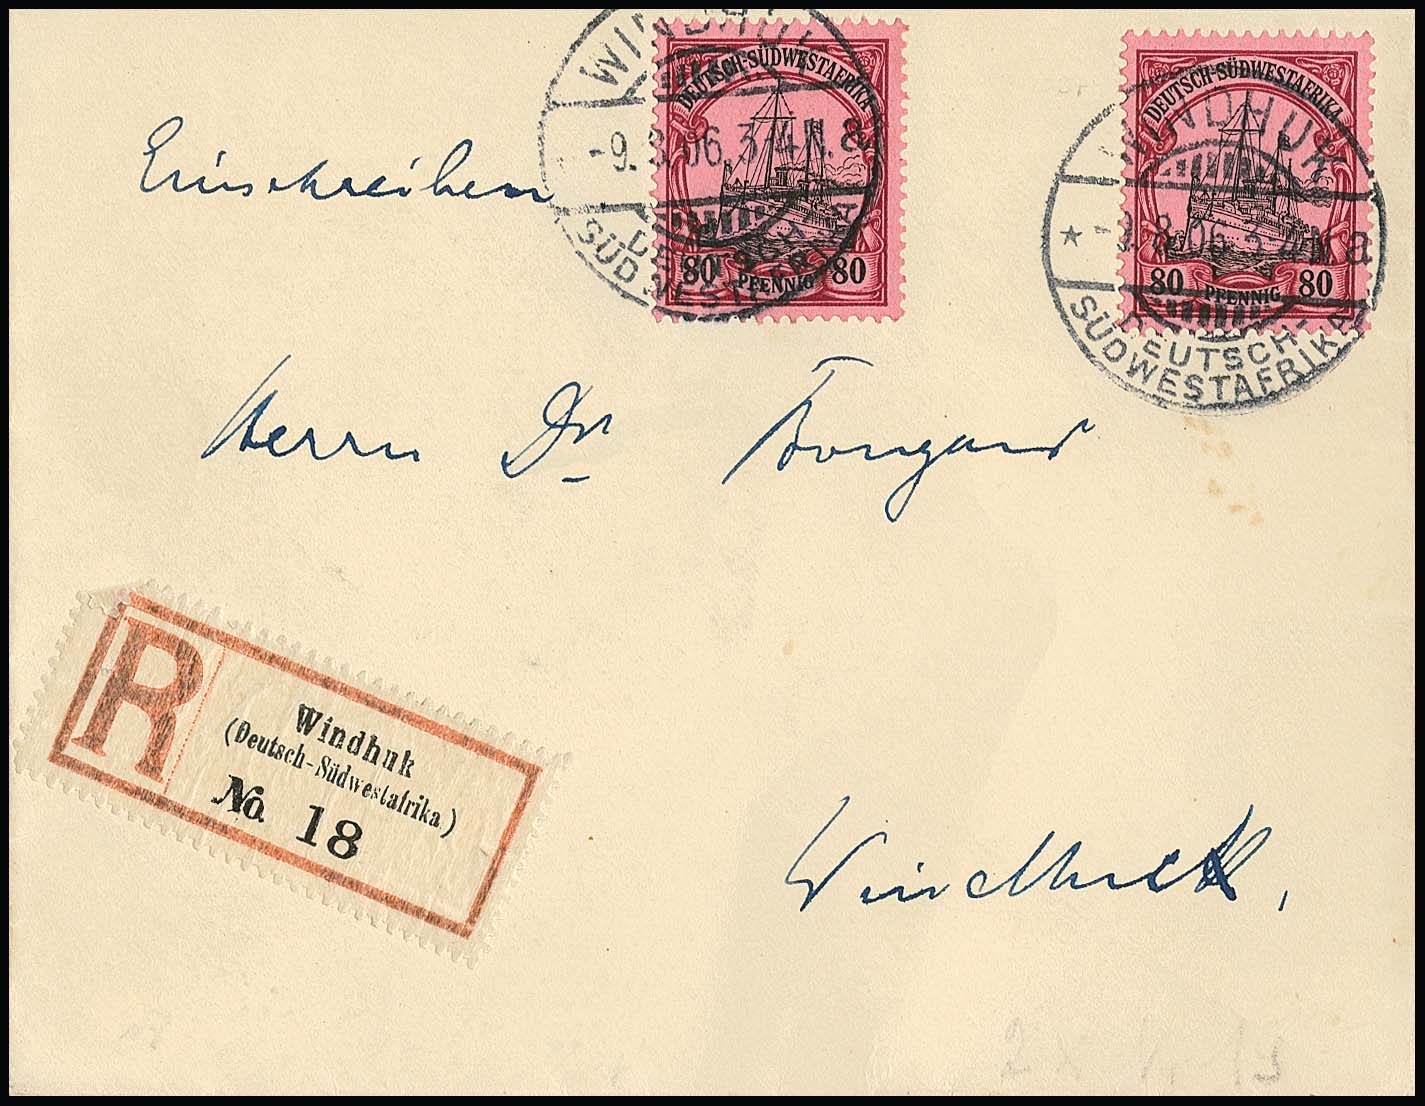 WINDHUK
-9.8.06.3-4N. a
DEUTSCH-
SÜDWESTAFRIKA
DEUTSCH-SÜDWESTAFRIKA
80 PFENNIG 80
DEUTSCH-SÜDWESTAFRIKA
80 PFENNIG 80
WINDHUK
* -9.8.06.3-4N. a
DEUTSCH-
SÜDWESTAFRIKA
Einschreiben
Herrn Dr. Bongard
R
Windhuk
(Deutsch-Südwestafrika)
No. 18
Windhuk,